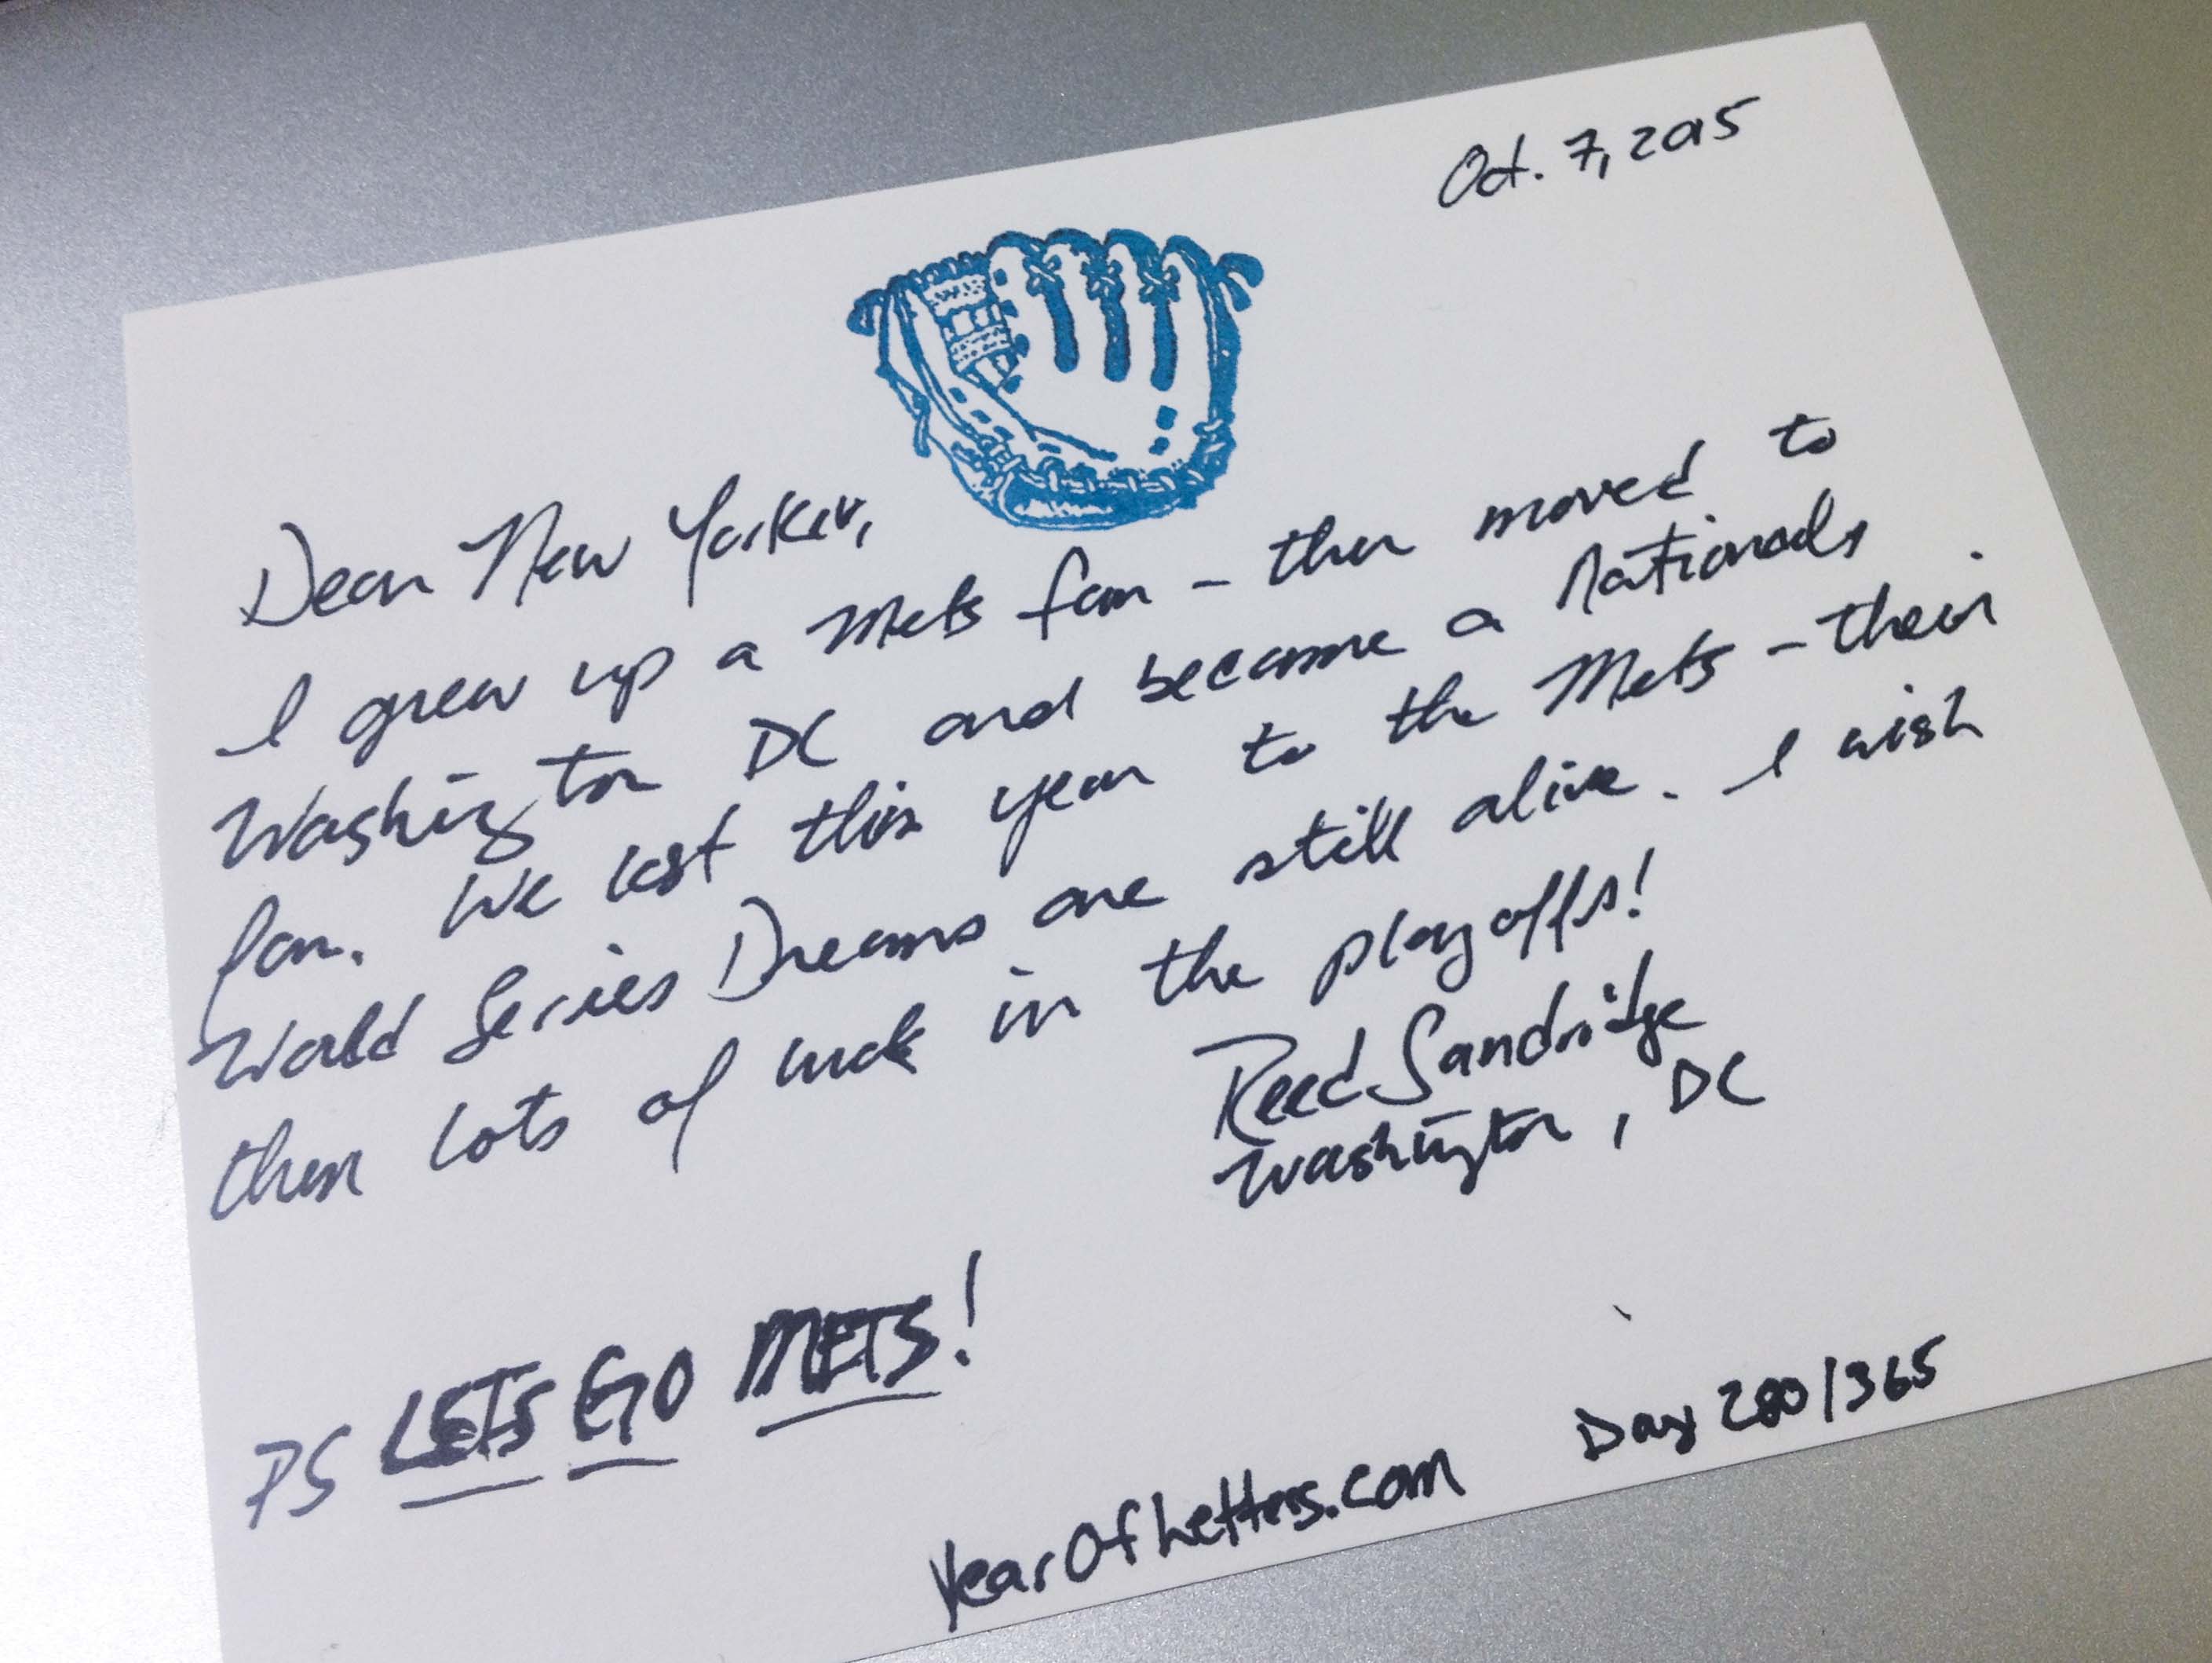 Oct. 7, 2015
Dear New Yorker,
I grew up a Mets fan – then moved to
Washington DC and became a Nationals
fan. We lost this year to the Mets – their
World Series Dreams are still alive. I wish
them lots of luck in the playoffs!
Reed Sandridge
Washington, DC
PS LETS GO METS!
YearOfLetters.com Day 280/365